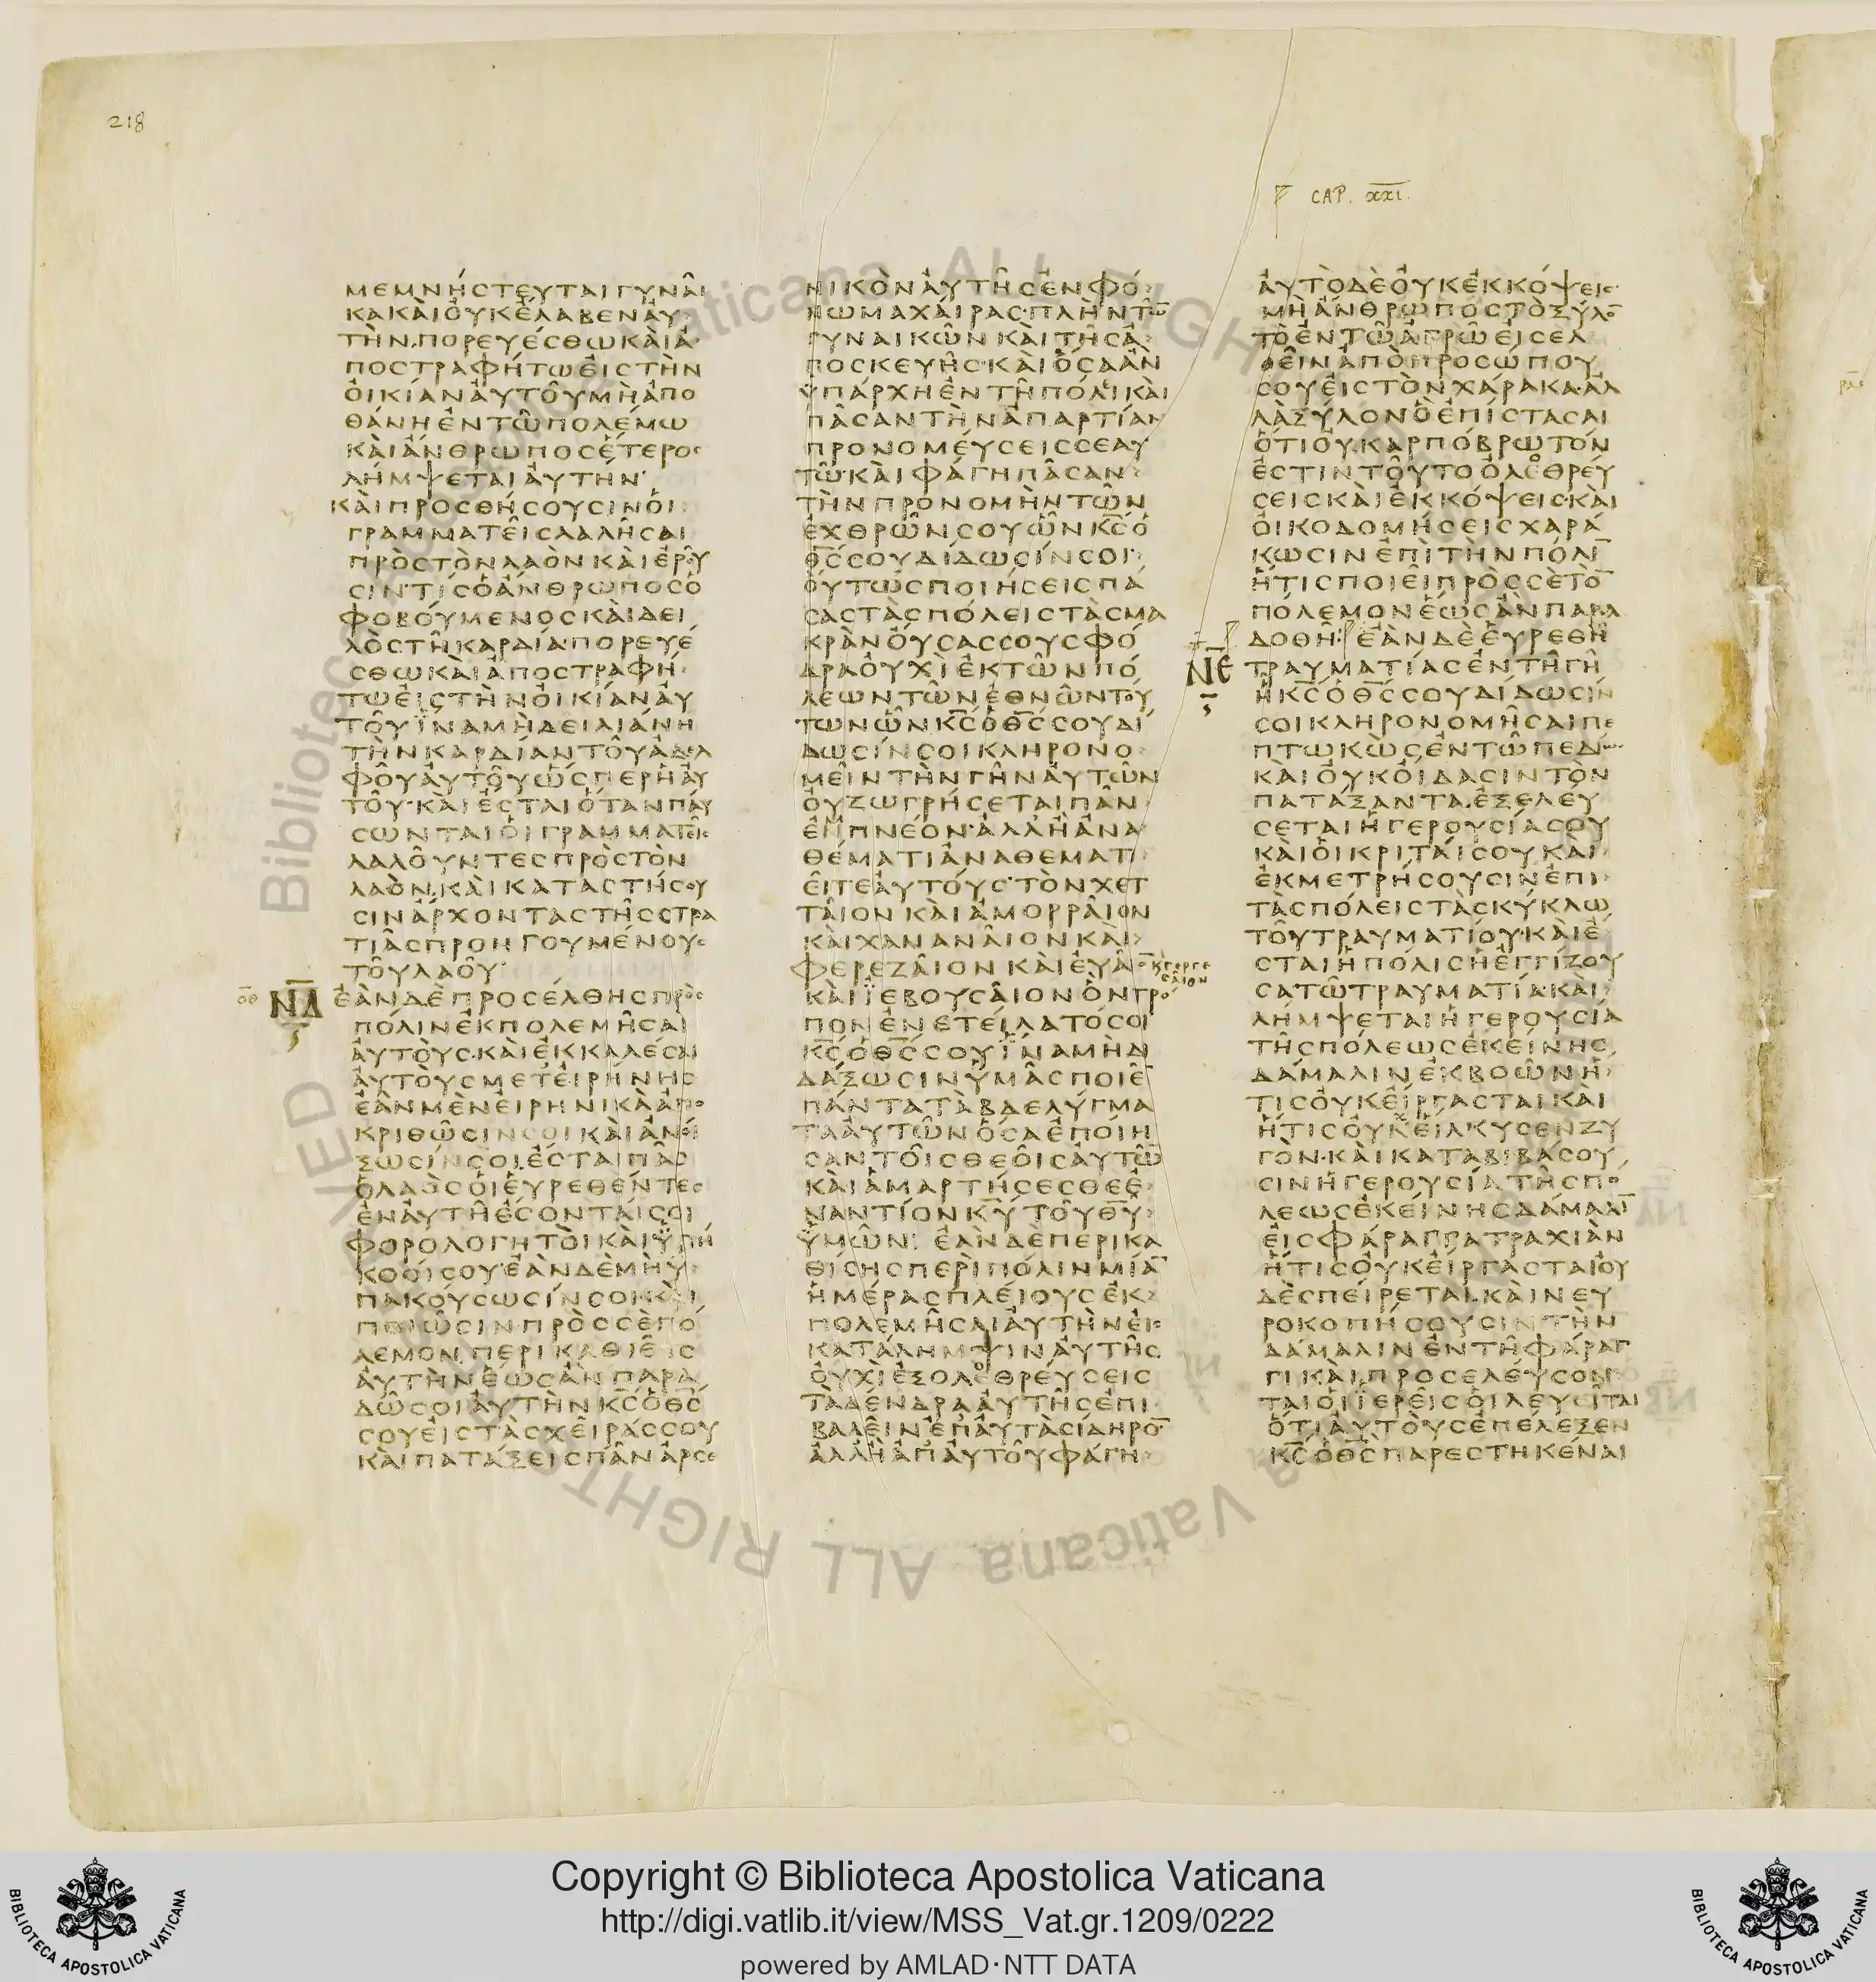 218
CAP. xxi.
μεμνήστευται γυνᾶι
κα κὰι ὀυκ ἔλαβεν ἀυ
τήν. πορευέσθω κὰι ἀ
ποστραφήτω ἐις τὴν
ὀικίαν ἀυτοῦ μὴ ἀπο
θάνη ἐν τῶ πολέμω
κὰι ἄνθρωπος ἕτερος
λήμψεται ἀυτήν·
κὰι προσθήσουσιν ὁι
γραμματεῖς λαλῆσαι
πρὸς τὸν λαὸν κὰι ἐροῦ
σιν· τίς ὁ ἄνθρωπος ὁ
φοβούμενος κὰι δει
λὸς τῆ καρδία· πορευέ
σθω κὰι ἀποστραφή
τω ἐις τὴν ὀικίαν ἀυ
τοῦ ἵνα μὴ δειλιάνη
τὴν καρδίαν τοῦ ἀδελ
φοῦ ἀυτοῦ ὥσπερ ἡ ἀυ
τοῦ· κὰι ἔσται ὅταν παύ
σωνται ὁι γραμματεῖς
λαλοῦντες πρὸς τὸν
λαόν. κὰι καταστήσου
σιν ἄρχοντας τῆς στρα
τιᾶς προηγουμένους
τοῦ λαοῦ·
ΝΔ ἐὰν δὲ προσέλθης πρὸς
πόλιν ἐκπολεμῆσαι
ἀυτοὺς· κὰι ἐκκαλέσαι
ἀυτοὺς μετ ἐιρήνης
ἐὰν μὲν ἐιρηνικὰ ἀπο
κριθῶσιν σοι κὰι ἀνοί
ξωσίν σοι. ἔσται πᾶς
ὁ λαὸς ὁι ἑυρεθέντες
ἐν ἀυτῆ ἔσονταί σοι
φορολογητοὶ κὰι ὑπή
κοοί σου· ἐὰν δὲ μὴ ὑ
πακούσωσίν σοι κὰι
ποιῶσιν πρὸς σὲ πό
λεμον. περικαθιεῖς
ἀυτὴν ἕως ἂν παρα
δῶ σοι ἀυτὴν κ̅ς̅ ὁ θ̅ς̅
σου ἐις τὰς χεῖράς σου
κὰι πατάξεις πᾶν ἀρσε
νικὸν ἀυτῆς ἐν φό
νω μαχάιρας· πλὴν τῶ̅
γυναικῶν κὰι τῆς ἀ
ποσκευῆς· κὰι ὅσα ἂν
ὑπάρχη ἐν τῆ πόλει κὰι
πᾶσαν τὴν ἀπαρτίαν
προνομέυσεις σεαυ
τῶ· κὰι φάγη πᾶσαν
τὴν προνομὴν τῶν
ἐχθρῶν σου ὧν κ̅ς̅ ὁ
θ̅ς̅ σου δίδωσίν σοι·
ὅυτως ποιήσεις πά
σας τὰς πόλεις τὰς μα
κρὰν ὄυσας σου σφό
δρα ὀυχὶ ἐκ τῶν πό
λεων τῶν ἐθνῶν τού
των ὧν κ̅ς̅ ὁ θ̅ς̅ σου δί
δωσίν σοι κληρονο
μεῖν τὴν γῆν ἀυτῶν
ὀυ ζωγρήσεται πᾶν
ἐμπνέον· ἀλλ ἢ ἀνα
θέματι ἀναθεματι
εῖτε ἀυτούς· τὸν χετ
τᾶιον κὰι ἀμορρᾶιον
κὰι χανανᾶιον κὰι
φερεζᾶιον κὰι ἑυᾶιο̅
κ γεργε
σαῖον
κὰι ϊεβουσᾶιον ὃν τρό
πον ἐνετείλατό σοι
κ̅ς̅ ὁ θ̅ς̅ σου ἵνα μὴ δι
δάξωσιν ὑμᾶς ποιεῖ̅
πάντα τὰ βδελύγμα
τα ἀυτῶν ὅσα ἐποίη
σαν τοῖς θεοῖς ἀυτῶ̅
κὰι ἁμαρτήσεσθε ἐ
ναντίον κ̅υ̅ τοῦ θ̅υ̅
ὑμῶν: ἐὰν δὲ περικα
θίσης περὶ πόλιν μία̅
ἡμέρας πλέιους ἐκ
πολεμῆσαι ἀυτὴν ἐις
κατάλημψιν ἀυτῆς
ὀυχὶ ἐξολεθρέυσεις
τὰ δένδρα ἀυτῆς ἐπι
βαλεῖν ἐπ ἀυτὰ σίδηρο̅
ἀλλ ἢ ἀπ ἀυτοῦ φάγη
ἀυτὸ δὲ ὀυκ ἐκκόψεις
μὴ ἄνθρωπος τὸ ξύλο̅
τὸ ἐν τῶ ἀγρῶ ἐισελ
θεῖν ἀπὸ προσώπου
σου ἐις τὸν χάρακα· ἀλ
λὰ ξύλον ὃ ἐπίστασαι
ὅτι ὀυ καρπόβρωτόν
ἐστιν τοῦτο ὀλεθρέυ
σεις κὰι ἐκκόψεις κὰι
ὀικοδομήσεις χαρά
κωσιν ἐπὶ τὴν πόλι̅
ἥτις ποιεῖ πρὸς σὲ τὸ̅
πόλεμον ἕως ἂν παρα
δοθῆ: ἐὰν δὲ ἑυρεθῆ
ΝΕ τραυματίας ἐν τῆ γῆ
ἧ κ̅ς̅ ὁ θ̅ς̅ σου δίδωσίν
σοι κληρονομῆσαι πε
πτωκὼς ἐν τῶ πεδίω
κὰι ὀυκ ὄιδασιν τὸν
πατάξαντα. ἐξελέυ
σεται ἡ γερουσία σου
κὰι ὁι κριταί σου κὰι
ἐκμετρήσουσιν ἐπὶ
τὰς πόλεις τὰς κύκλω
τοῦ τραυματίου· κὰι ἔ
σται ἡ πόλις ἡ ἐγγίζου
σα τῶ τραυματία· κὰι
λήμψεται ἡ γερουσία
τῆς πόλεως ἐκείνης
δάμαλιν ἐκ βοῶν ἥ
τις ὀυκ ἔιργασται κὰι
ἥτις ὀυκ ἕιλκυσεν ζυ
γόν· κὰι καταβιβάσου
σιν ἡ γερουσία τῆς πό
λεως ἐκείνης δάμαλι̅
ἐις φάραγγα τραχιὰν
ἥτις ὀυκ ἔιργασται ὀυ
δὲ σπέιρεται. κὰι νευ
ροκοπήσουσιν τὴν
δάμαλιν ἐν τῆ φάραγ
γι κὰι προσελέυσον
ται ὁι ϊερεῖς ὁι λευεῖται
ὅτι ἀυτοὺς ἐπέλεξεν
κ̅ς̅ ὁ θ̅ς̅ παρεστηκέναι
Copyright © Biblioteca Apostolica Vaticana
http://digi.vatlib.it/view/MSS_Vat.gr.1209/0222
powered by AMLAD·NTT DATA
BIBLIOTECA APOSTOLICA VATICANA
BIBLIOTECA APOSTOLICA VATICANA